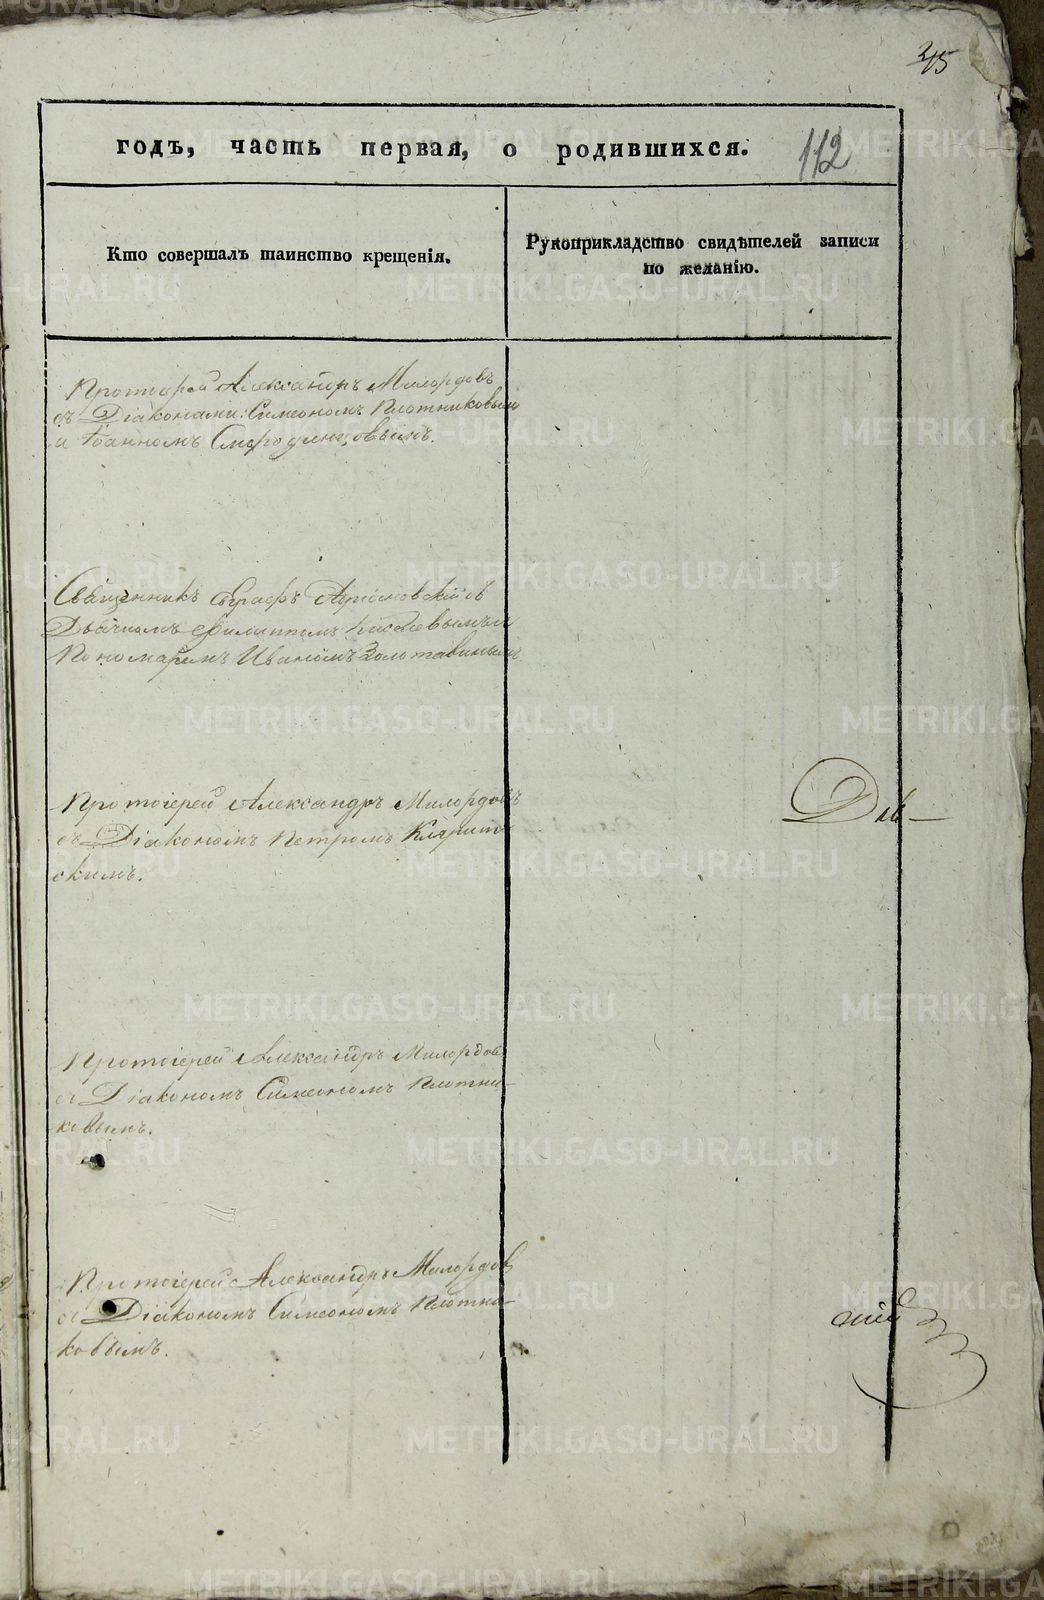 215
годъ, часть первая, о родившихся.
112
Кто совершалъ таинство крещенія.
Рукоприкладство свидѣтелей записи
по желанію.
Протоіерей Александръ Милордовъ
съ Діаконами: Симеономъ Плотниковымъ
и Іоанномъ Смородинцовымъ.
Священникъ Евграфъ съ
Дьячкомъ Филиппомъ
Пономаремъ Иваномъ Золотавинымъ
Протоіерей Александръ Милордовъ
съ Діакономъ Петромъ
скимъ.
Протоіерей Александръ Милордовъ
съ Діакономъ Симеономъ Плотни-
ковымъ.
Протоіерей Александръ Милордов
съ Діакономъ Симеономъ Плотни-
ковымъ.
METRIKI.GASO-URAL.RU